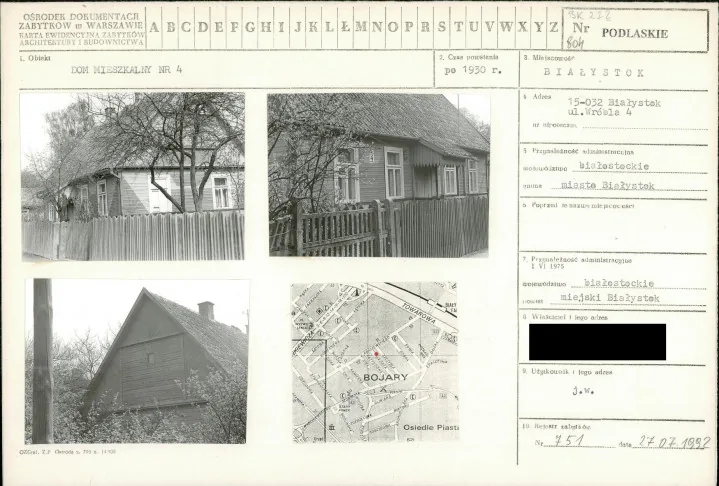 OŚRODEK DOKUMENTACJI
ZABYTKÓW w WARSZAWIE
KARTA EWIDENCYJNA ZABYTKÓW
ARCHITEKTURY I BUDOWNICTWA
A B C D E F G H I J K L Ł M N O P R S T U V W X Y Z
Nr
804
PODLASKIE
1. Obiekt
DOM MIESZKALNY NR 4
2. Czas powstania
po 1930 r.
3. Miejscowość
BIAŁYSTOK
4. Adres
15-032 Białystok
ul.Wróbla 4
5. Przynależność administracyjna
województwo białostockie
gmina miasto Białystok
6. Poprzednie nazwy miejscowości
7. Przynależność administracyjna
1 VI 1975
województwo białostockie
powiat miejski Białystok
8. Właściciel i jego adres
9. Użytkownik i jego adres
j.w.
10. Rejestr zabytków
Nr 751 data 27.07.1992
TOWAROWA
BOJARY
Osiedle Piasta